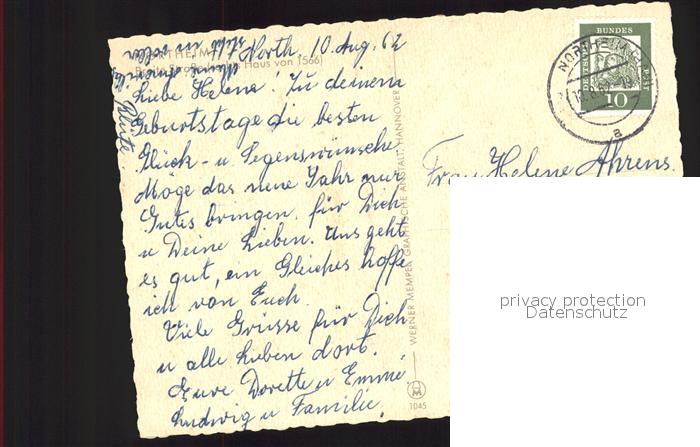 North. 10. Aug. 62
NORTHEIM
Haus von 1566)
Liebe Helene! Zu deinem
Geburtstage die besten
Glück- u. Segenswünsche
Möge das neue Jahr nur
Gutes bringen, für Dich
u Deine Lieben. Uns geht
es gut, ein Gleiches hoffe
ich von Euch.
Viele Grüsse für Dich
u alle Lieben dort.
Eure Dorette u Emmi
Ludwig u Familie.
Blüte
WERNER MEMPER GRAPHISCHE ANSTALT, HANNOVER
1045
DEUTSCHE
BUNDES
POST
10
NORTHEIM
a
Frau Helene Ahrens.
privacy protection
Datenschutz